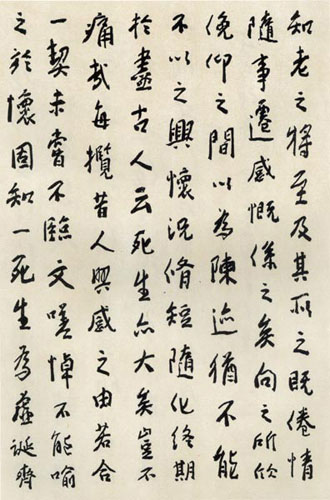 知老之將至及其所之既倦情
隨事遷感慨係之矣向之所欣
俛仰之間以為陳迹猶不能
不以之興懷況脩短隨化終期
於盡古人云死生亦大矣豈不
痛哉每攬昔人興感之由若合
一契未嘗不臨文嗟悼不能喻
之於懷固知一死生為虛誕齊